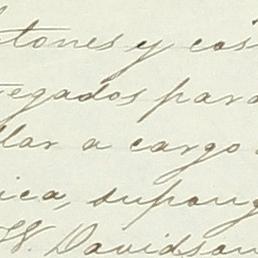 tones y cos
egados para
llar a cargo
ica, supong
W. Davidson